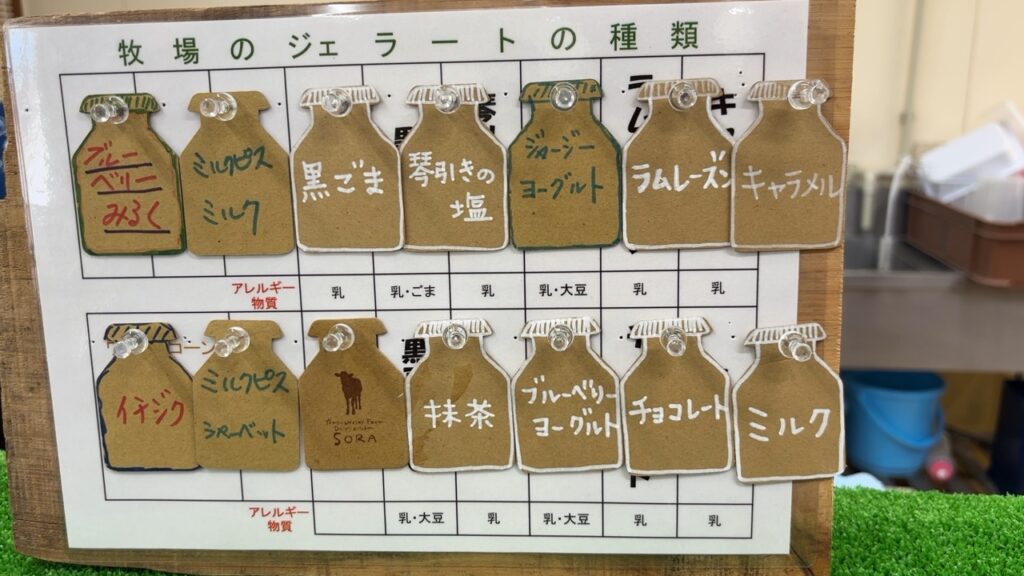 牧場のジェラートの種類
ブルー
ベリー
みるく
ミルクピス
ミルク
黒ごま
琴引きの
塩
ジャージー
ヨーグルト
ラムレーズン
キャラメル
アレルギー
物質
乳
乳・ごま
乳
乳・大豆
乳
乳
イチジク
ミルクピス
シャーベット
SORA
抹茶
ブルーベリー
ヨーグルト
チョコレート
ミルク
アレルギー
物質
乳・大豆
乳
乳・大豆
乳
乳